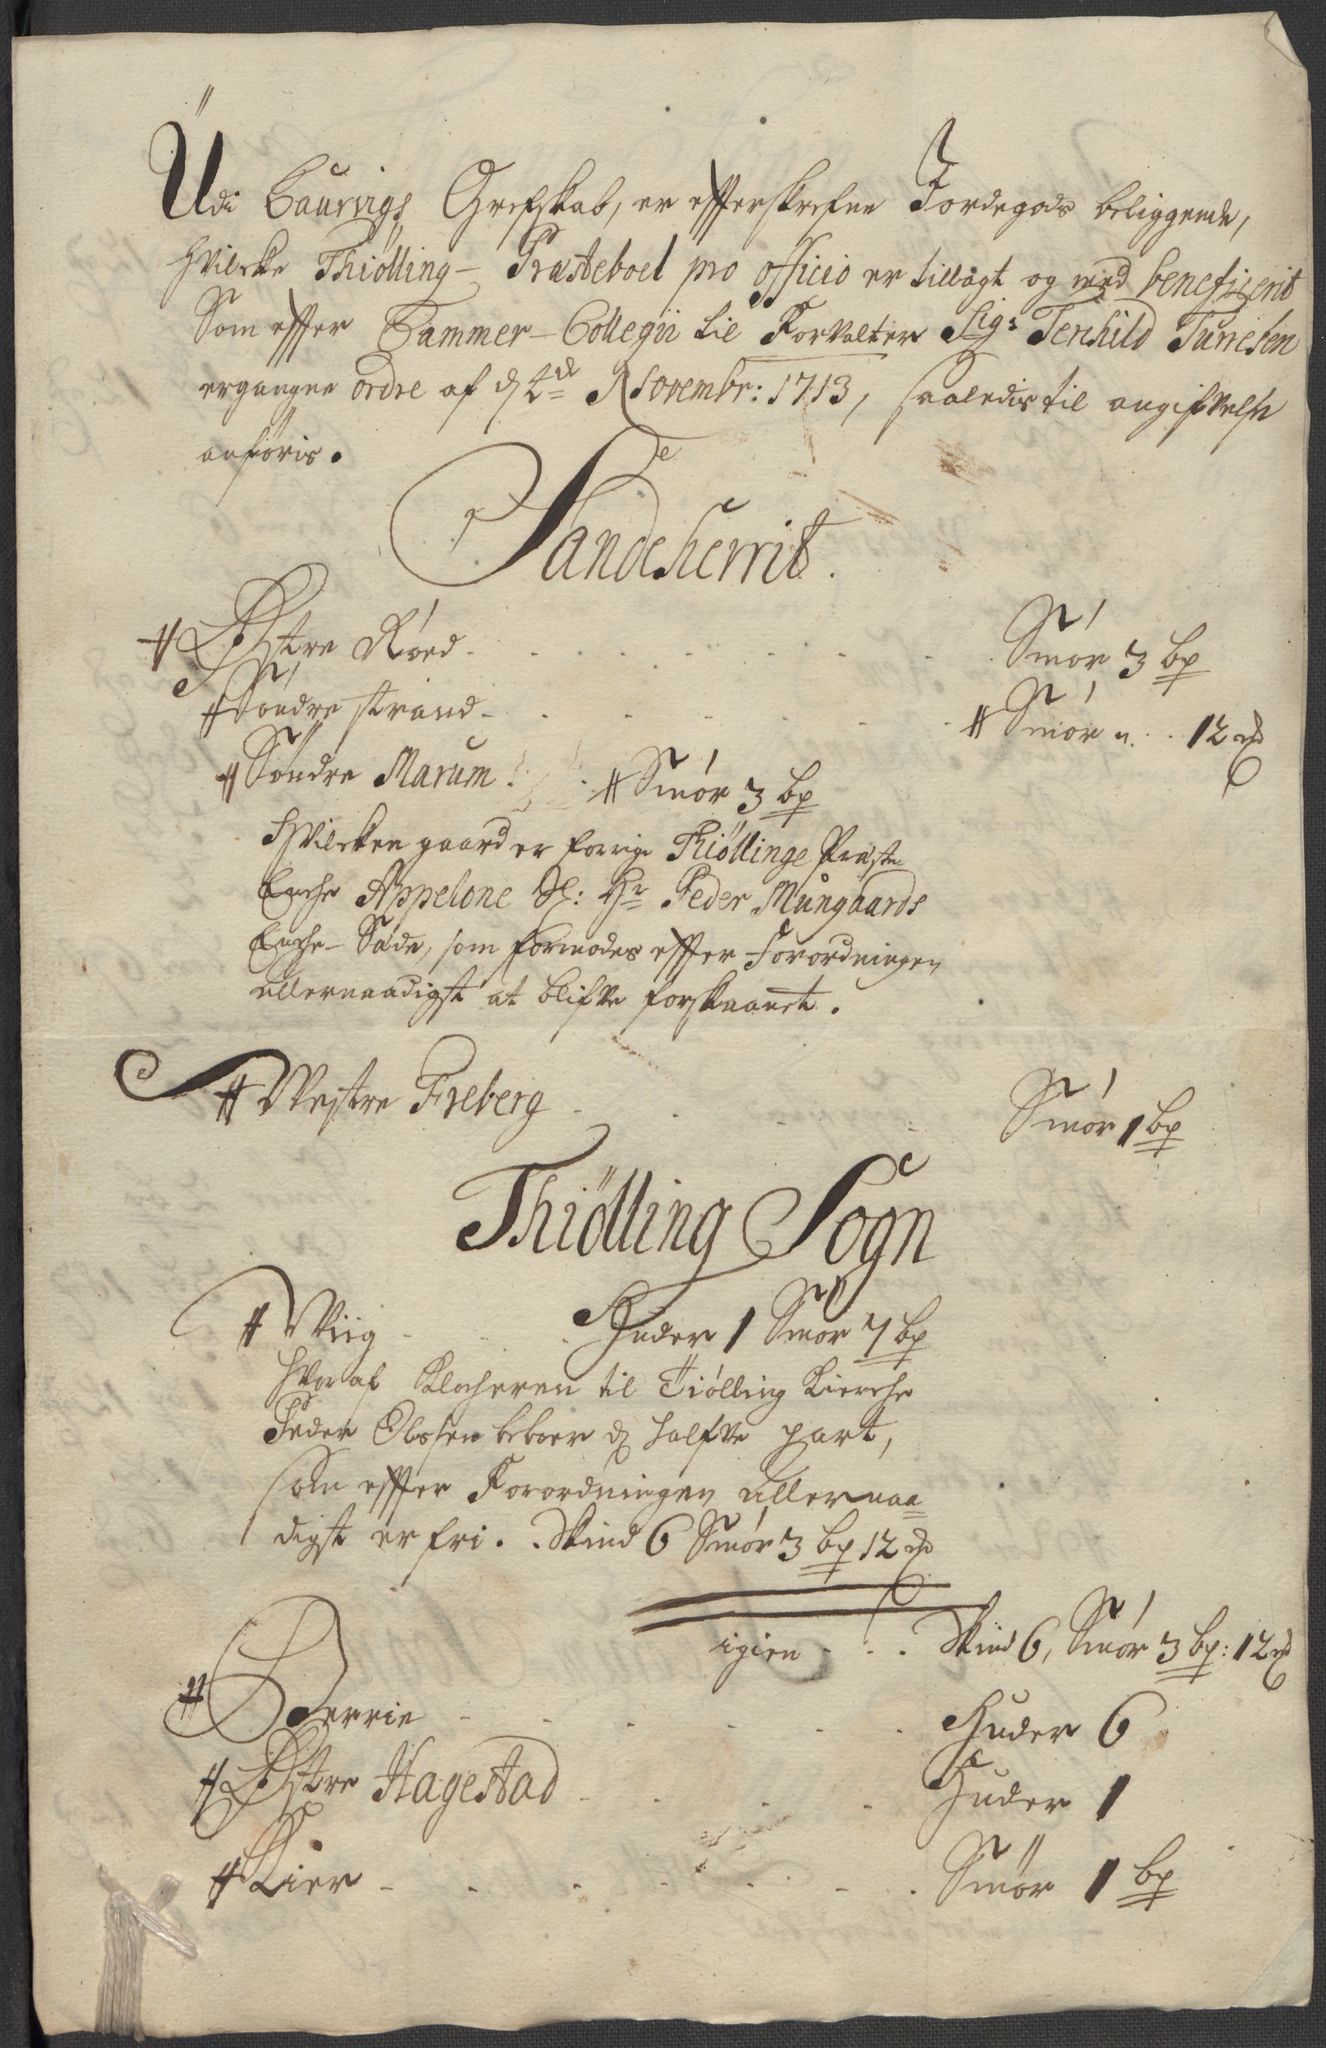 Udi Laurvigs Grefskab, er effterskrefne Jordegods beliggende,
hvilcke Thiølling- Præsteboel pro officio er tillagt og med beneficerit
Som effter Cammer-Collegii til Forvalter Sig.r Terchild Turesen
ergangne ordre af d 4de Novembr: 1713, saaledis til angifvelse
anføris.
Sandeherrit.
# Østre Røed - Smør 3 bp
# Søndre Strand - # Smør n. 12 mk
# Søndre Marum - # Smør 3 bp
Hvilcken gaard er forrige Thiøllinge Præste
Enche Appelone Sl: Hr Peder Mungaards
Enche-Sæde, som formodes effter Forordningen
allernaadigst at blifve forskaanet.
# Westre Freberg - Smør 1 bp
Thiølling Sogn
# Wiig - Huder 1 Smør 7 bp
hvoraf Klocheren til Tiølling Kierche
Peder Olssen beboer d halfve part,
som effter Forordningen allernaa=
digst er fri. Skind 6 Smør 3 bp 12 mk
igien - Skind 6, Smør 3 bp: 12 mk
# Berrie - Huder 6
# Østre Hagestad - Huder 1
# Kier - Smør 1 bp